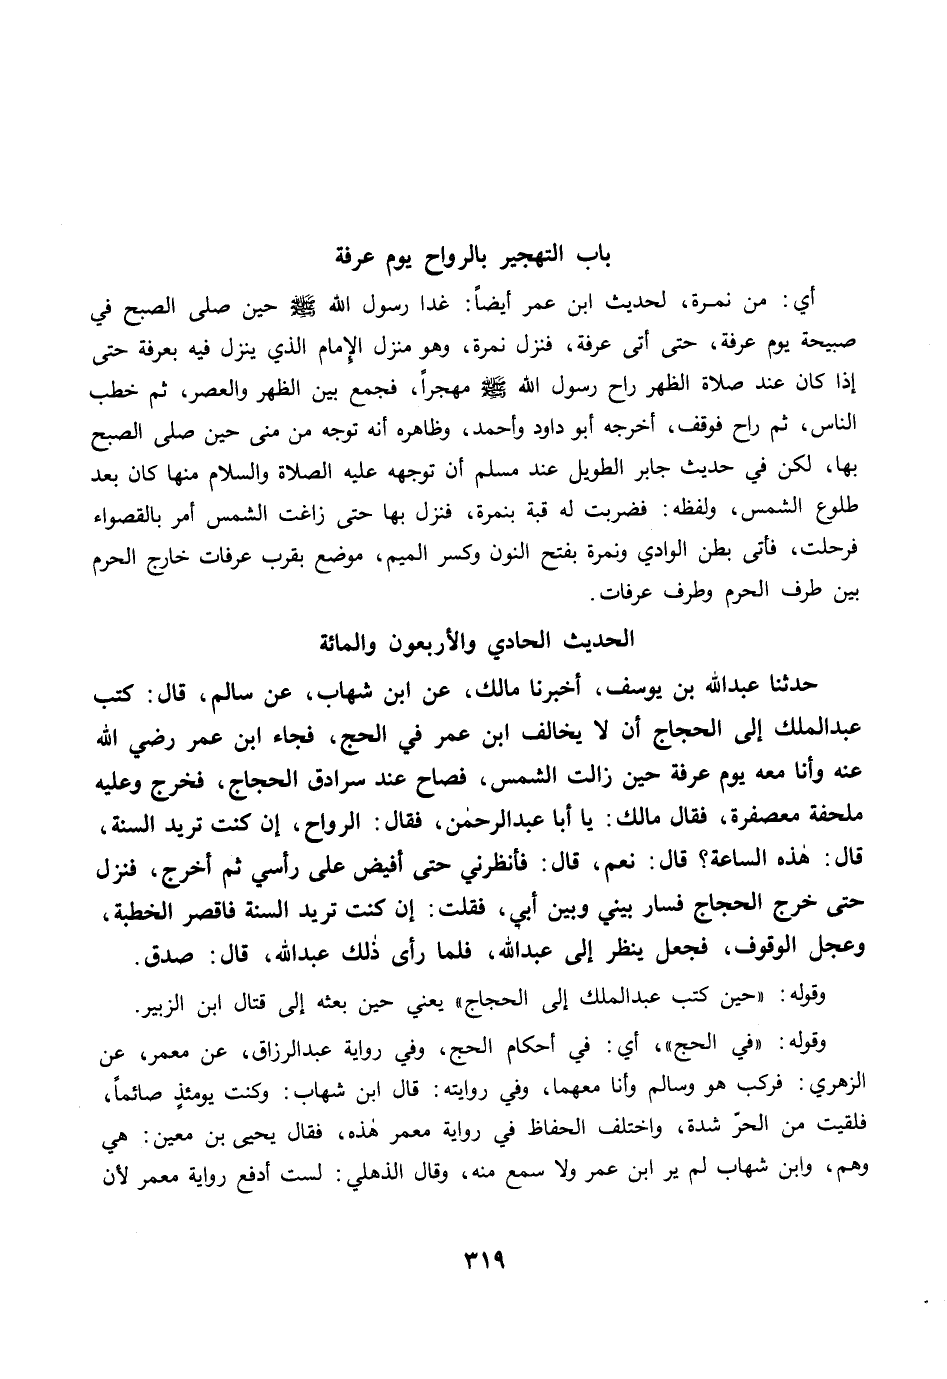 باب التهجير بالرواح يوم عرفة
أي: من نمـرة، لحديث ابن عمر أيضاً: غدا رسول الله ﷺ حين صلى الصبح في
صبيحة يوم عرفة، حتى أتى عرفة، فنزل نمرة، وهو منزل الإمام الذي ينزل فيه بعرفة حتى
إذا كان عند صلاة الظهر راح رسول الله ﷺ مهجراً، فجمع بين الظهر والعصر، ثم خطب
الناس، ثم راح فوقف، أخرجه أبو داود وأحمد، وظاهره أنه توجه من منى حين صلى الصبح
بها، لكن في حديث جابر الطويل عند مسلم أن توجهه عليه الصلاة والسلام منها كان بعد
طلوع الشمس، ولفظه: فضربت له قبة بنمرة، فنزل بها حتى زاغت الشمس أمر بالقصواء
فرحلت، فأتى بطن الوادي ونمرة بفتح النون وكسر الميم، موضع بقرب عرفات خارج الحرم
بين طرف الحرم وطرف عرفات.
الحديث الحادي والأربعون والمائة
حدثنا عبدالله بن يوسف، أخبرنا مالك، عن ابن شهاب، عن سالم، قال: كتب
عبدالملك إلى الحجاج أن لا يخالف ابن عمر في الحج، فجاء ابن عمر رضي الله
عنه وأنا معه يوم عرفة حين زالت الشمس، فصاح عند سرادق الحجاج، فخرج وعليه
ملحفة معصفرة، فقال مالك: يا أبا عبدالرحمٰن، فقال: الرواح، إن كنت تريد السنة،
قال: هٰذه الساعة؟ قال: نعم، قال: فأنظرني حتى أفيض على رأسي ثم أخرج، فنزل
حتى خرج الحجاج فسار بيني وبين أبي، فقلت: إن كنت تريد السنة فاقصر الخطبة،
وعجل الوقوف، فجعل ينظر إلى عبدالله، فلما رأى ذٰلك عبدالله، قال: صدق.
وقوله: «حين كتب عبدالملك إلى الحجاج» يعني حين بعثه إلى قتال ابن الزبير.
وقوله: «في الحج»، أي: في أحكام الحج، وفي رواية عبدالرزاق، عن معمر، عن
الزهري: فركب هو وسالم وأنا معهما، وفي روايته: قال ابن شهاب: وكنت يومئذٍ صائماً،
فلقيت من الحرّ شدة، واختلف الحفاظ في رواية معمر هٰذه، فقال يحيى بن معين: هي
وهم، وابن شهاب لم ير ابن عمر ولا سمع منه، وقال الذهلي: لست أدفع رواية معمر لأن
٣١٩